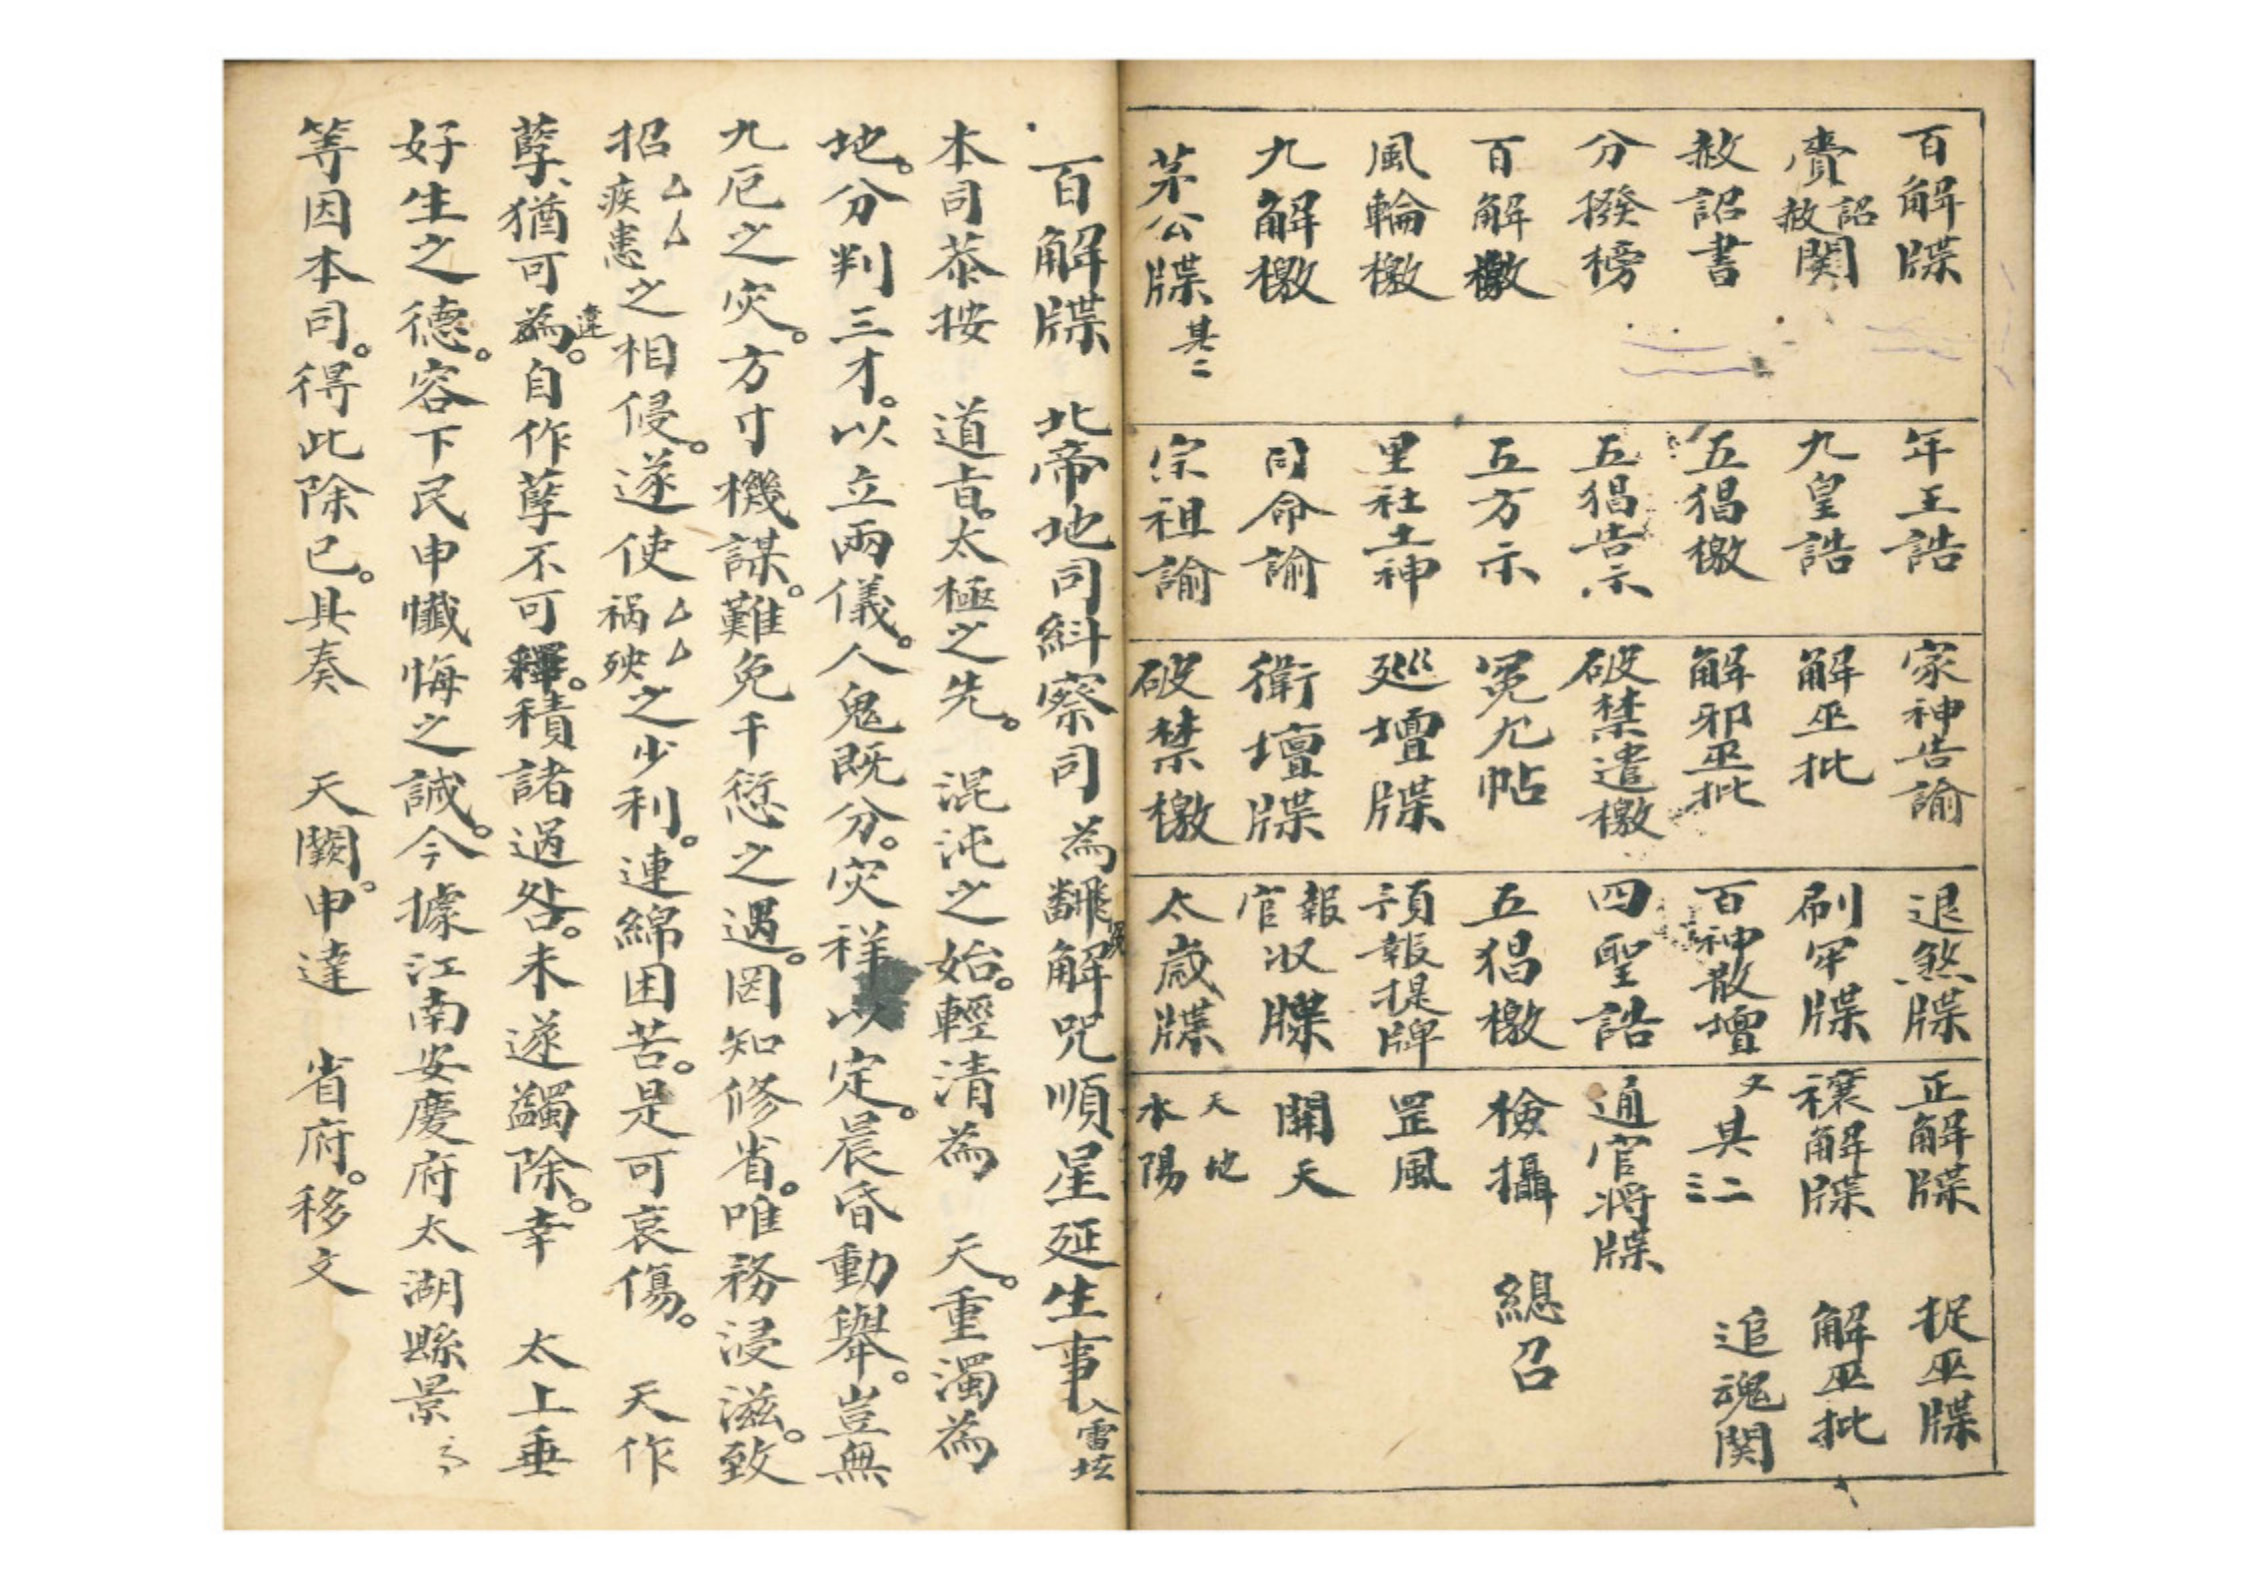 百解牒
賫詔赦関
赦詔書
分撥榜
百解檄
風輪檄
九解檄
茅公牒 其二
年王誥
九皇誥
五猖檄
五猖告示
五方示
里社土神
司命諭
宗祖諭
家神告諭
解巫批
解邪巫批
破禁遣檄
冤九帖
廵壇牒
衛壇牒
破禁檄
退煞牒
刷牢牒
百神散壇
四聖誥
五猖檄
預報提牌
報官収牒
太歲牒
正解牒 捉巫牒
禳解牒 解巫批
又具二三 追魂関
通官將牒
檢攝 總召
罡風
開天
天地
水陽
百解牒 北帝地司糾察司 為飜解咒順星延生事 入雷坛
本司恭按 道旨。太極之先。混沌之始。輕清為 天。重濁為
地。分判三才。以立兩儀。人鬼既分。灾祥以定。晨昏動舉。豈無
九厄之灾。方寸機謀。難免千愆之遇。罔知修省。唯務浸滋。致
招厶厶疾患之相侵。遂使厶厶祸殃之少利。連綿困苦。是可哀傷。 天作
孽、猶可為違。自作孽不可釋。積諸過咎。未遂蠲除。幸 太上垂
好生之德。容下民申懺悔之誠。今據江南安慶府太湖縣景
等因本司。得此除已。具奏 天闕。申達 省府。移文